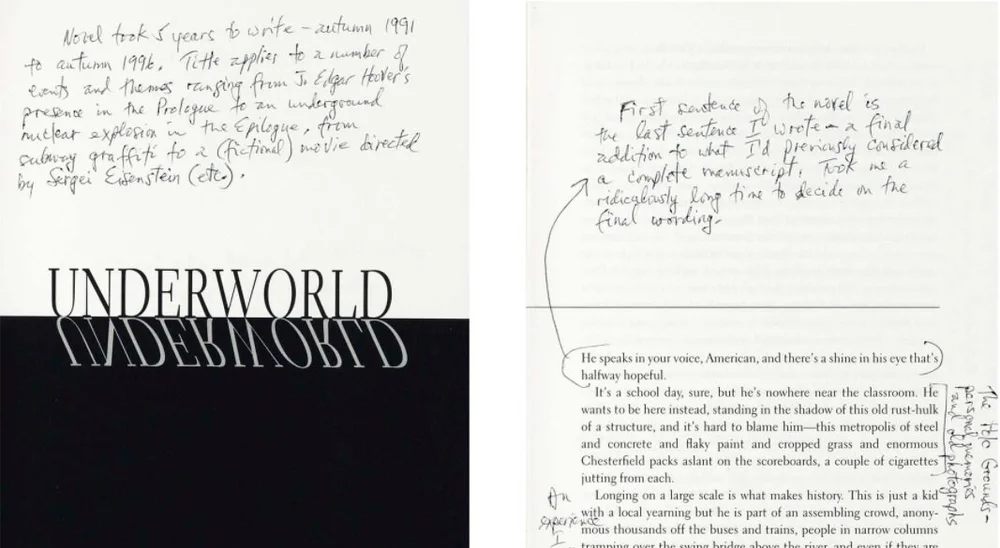 Novel took 5 years to write – autumn 1991
to autumn 1996. Title applies to a number of
events and themes ranging from J. Edgar Hoover's
presence in the Prologue to an underground
nuclear explosion in the Epilogue, from
subway graffiti to a (fictional) movie directed
by Sergei Eisenstein (etc.).
UNDERWORLD
UNDERWORLD
First sentence of the novel is
the last sentence I wrote – a final
addition to what I'd previously considered
a complete manuscript. Took me a
ridiculously long time to decide on the
final wording.
He speaks in your voice, American, and there's a shine in his eye that's
halfway hopeful.
It's a school day, sure, but he's nowhere near the classroom. He
wants to be here instead, standing in the shadow of this old rust-hulk
of a structure, and it's hard to blame him—this metropolis of steel
and concrete and flaky paint and cropped grass and enormous
Chesterfield packs aslant on the scoreboards, a couple of cigarettes
jutting from each.
The Polo Grounds –
personal memories
and old photographs
Longing on a large scale is what makes history. This is just a kid
with a local yearning but he is part of an assembling crowd, anony-
mous thousands off the buses and trains, people in narrow columns
tramping over the swing bridge above the river, and even if they are
An
experience